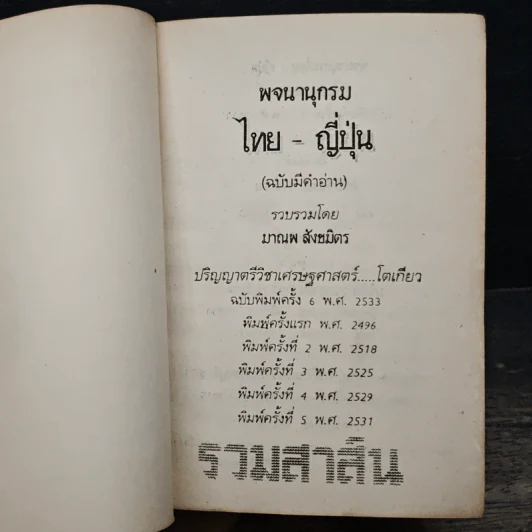 พจนานุกรม
ไทย - ญี่ปุ่น
(ฉบับมีคำอ่าน)
รวบรวมโดย
มาณพ สังขมิตร
ปริญญาตรีวิชาเศรษฐศาสตร์.....โตเกียว
ฉบับพิมพ์ครั้ง 6 พ.ศ. 2533
พิมพ์ครั้งแรก พ.ศ. 2496
พิมพ์ครั้งที่ 2 พ.ศ. 2518
พิมพ์ครั้งที่ 3 พ.ศ. 2525
พิมพ์ครั้งที่ 4 พ.ศ. 2529
พิมพ์ครั้งที่ 5 พ.ศ. 2531
รวมสาส์น